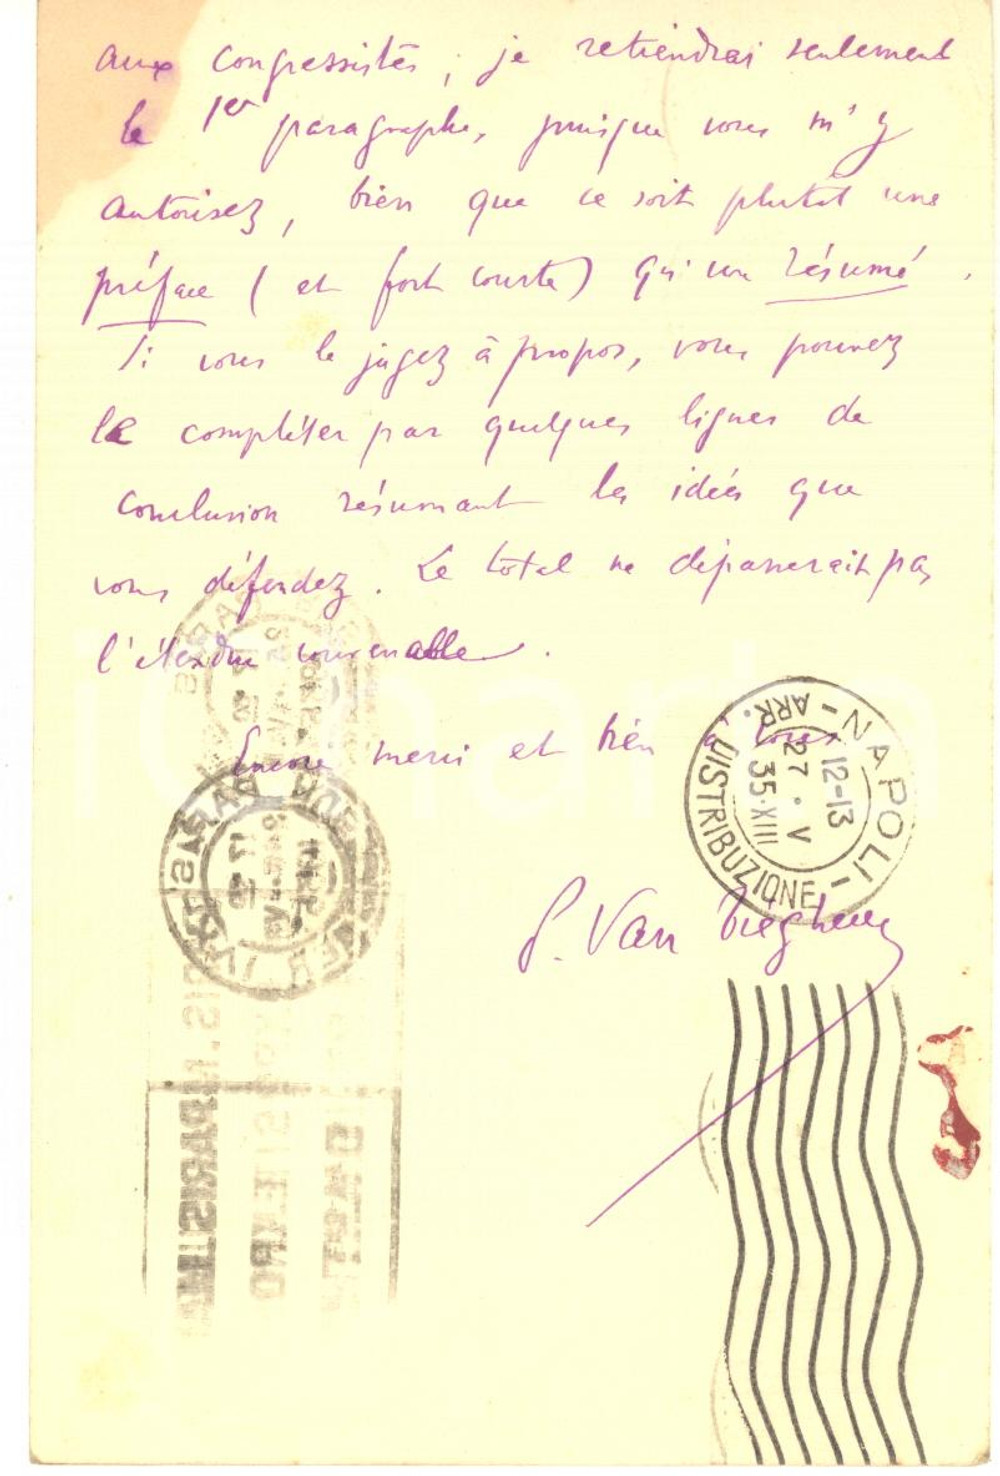 aux congressistes ; je retiendrai seulement
le 1er paragraphe, puisque vous m'y
autorisez, bien que ce soit plutôt une
préface (et fort courte) qu'un résumé.
Si vous le jugez à propos, vous pouvez
le compléter par quelques lignes de
conclusion résumant les idées que
vous défendez. Le total ne dépasserait pas
l'étendue convenable.
Encore merci et bien à vous
P. Van Tieghem
NAPOLI - ARR. DISTRIBUZIONE -
12-13
27 · V
35·XIII
PARIS